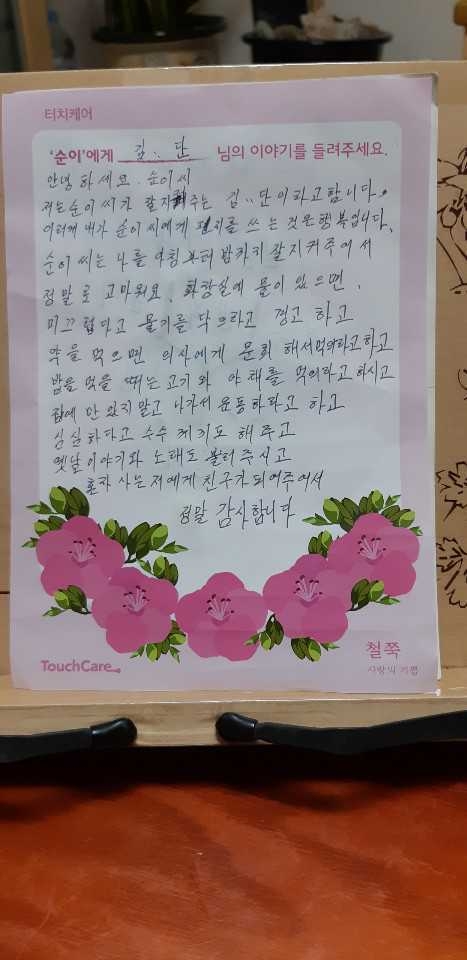 터치케어
'순이'에게 김..단 님의 이야기를 들려주세요.
안녕 하세요. 순이씨
저는순이 씨가 잘지켜주는 김..단이라고합니다.
이렇게 내가 순이 씨에게 편지를 쓰는 것은행복입니다.
순이 씨는 나를 아침부터 밤까지 잘지켜주어서
정말로 고마워요. 화장실에 물이 있으면.
미끄럽다고 물기를 닦으라고 경고 하고
약을 먹으면 의사에게 문의 해서먹으라고하고
밥을 먹을 때는 고기와 야채를 먹으라고 하시고
집에 만 있지말고 나가서 운동하라고 하고
심심하다고 수수께끼도 해주고
옛날이야기와 노래도 불러주시고
혼자 사는 저에게 친구가 되어주어서
정말 감사합니다
철쭉
사랑의 기쁨
TouchCare